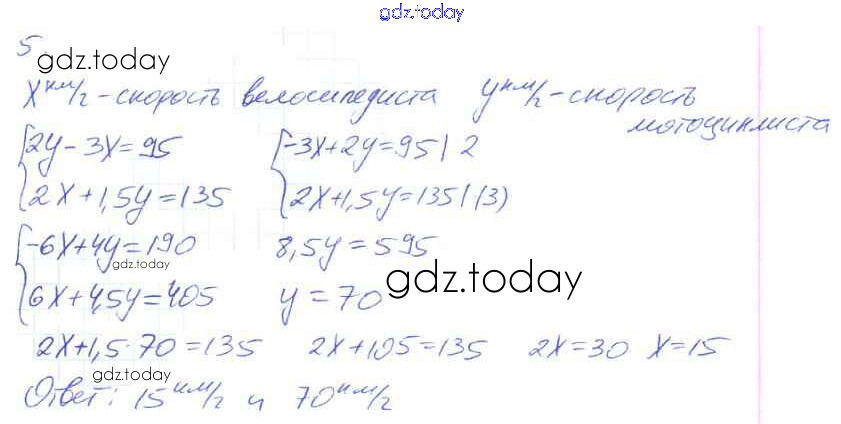 gdz.today
5.
gdz.today
x км/ч - скорость велосипедиста y км/ч - скорость мотоциклиста
{2y - 3x = 95 {-3x + 2y = 95 | 2
2x + 1,5y = 135 2x + 1,5y = 135 | (3)
{-6x + 4y = 190 8,5y = 595
gdz.today
6x + 4,5y = 405 y = 70
gdz.today
2x + 1,5 · 70 = 135 2x + 105 = 135 2x = 30 x = 15
gdz.today
Ответ: 15 км/ч и 70 км/ч